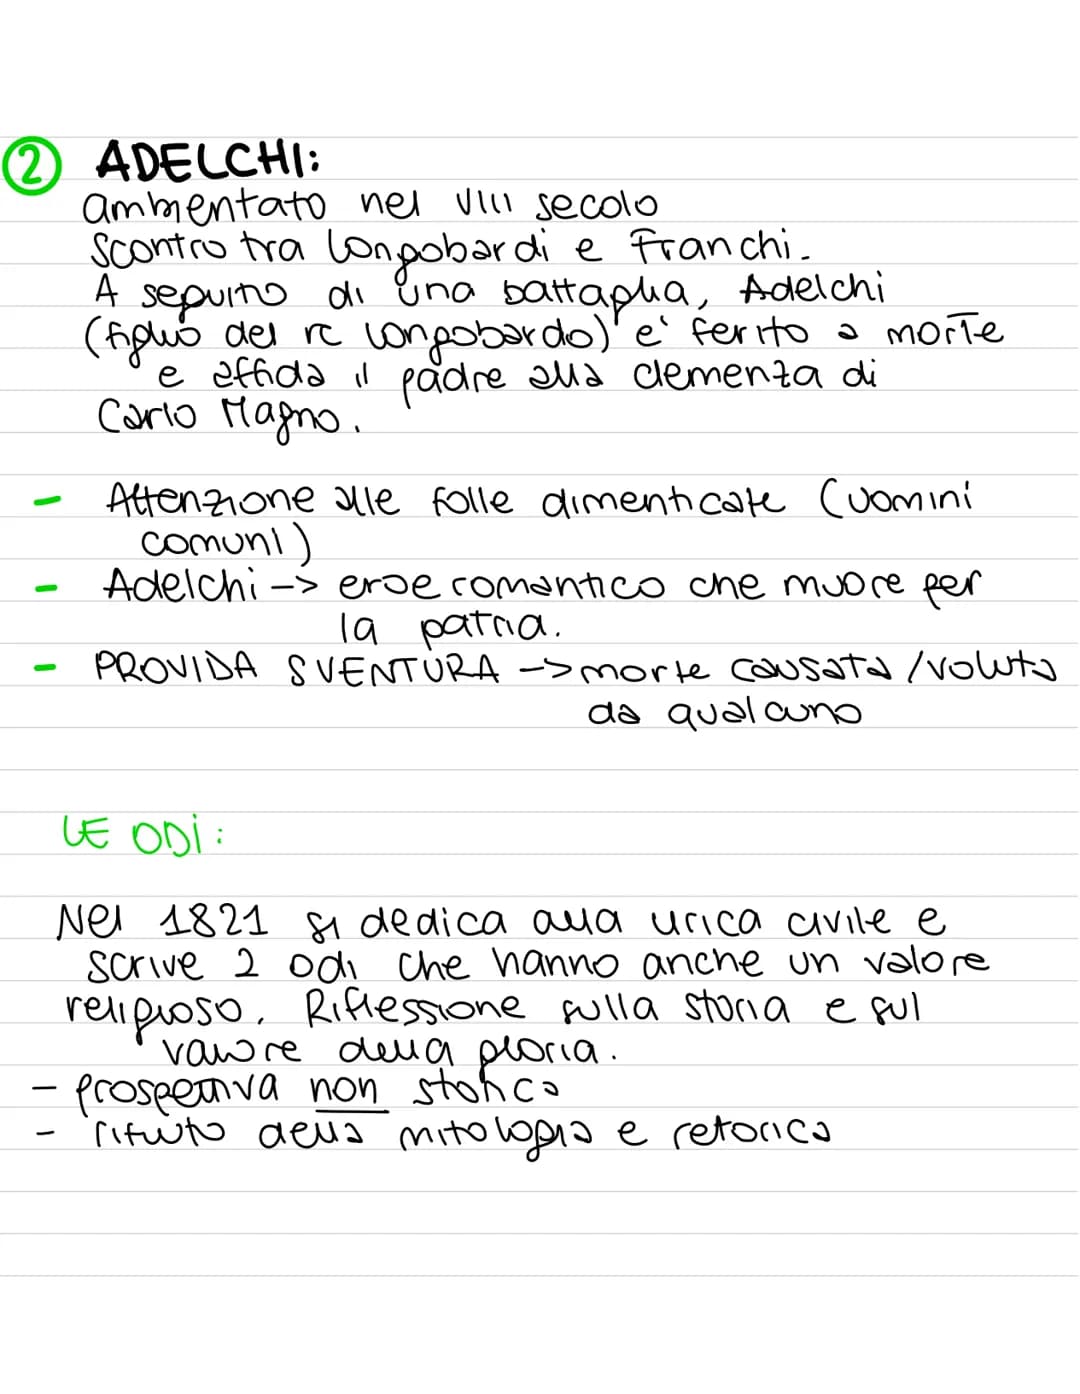 2 ADELCHI:
ambientato nel VIII secolo
Scontro tra longobardi e Franchi.
A seguito di una battaglia, Adelchi
(figlio del re longobardo) e' ferito a morte
e affida il padre alla clemenza di
Carlo Magno.
- Attenzione alle folle dimenticate (uomini
comuni)
- Adelchi -> eroe romantico che muore per
la patria.
- PROVIDA SVENTURA -> morte causata /voluta
da qualcuno
LE ODI:
Nel 1821 si dedica alla lirica civile e
scrive 2 odi che hanno anche un valore
religioso. Riflessione sulla storia e sul
valore della gloria.
- prospettiva non storica
- rifiuto della mitologia e retorica